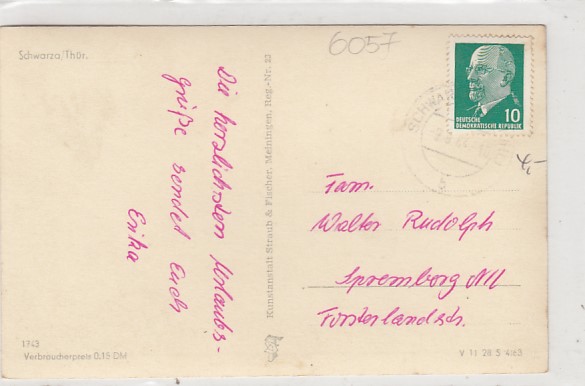 Schwarza/Thür.
6057
10
DEUTSCHE
DEMOKRATISCHE REPUBLIK
Die herzlichsten Urlaubs-
grüße sendet Euch
Erika
Kunstanstalt Straub & Fischer, Meiningen, Reg.-Nr. 23
Fam.
Walter Rudolph
Spremberg NL
Forsterlandstr.
1743
Verbraucherpreis 0,15 DM
V 11 28 S 4/63